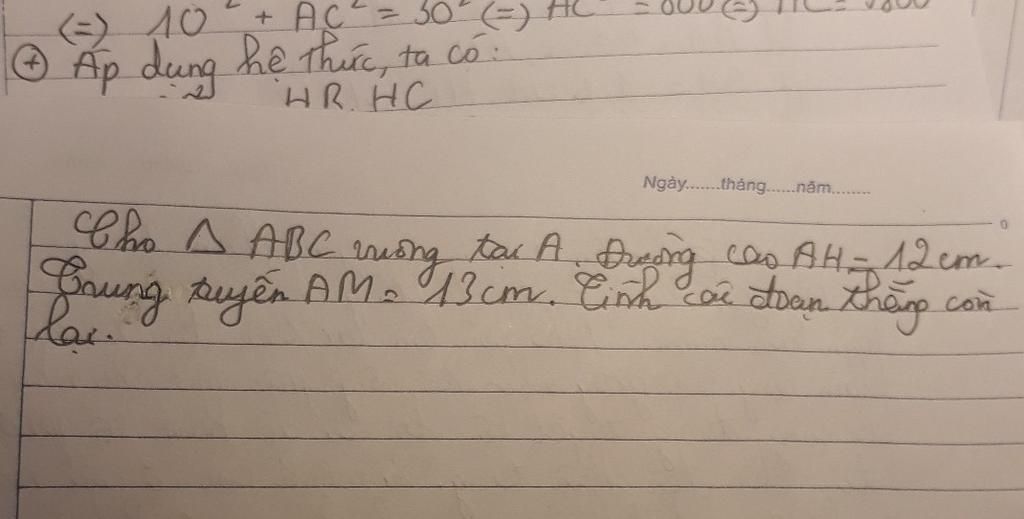 (=) 10² + AC² = 30² (=) AC² = 800 (=) AC = √800
⊕ Áp dụng hệ thức, ta có:
HB.HC
Ngày.......tháng......năm........
Cho △ ABC vuông tại A. Đường cao AH = 12cm.
Trung tuyến AM = 13cm. Tính các đoạn thẳng còn
lại.